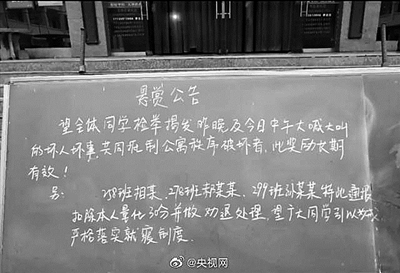 悬赏公告
望全体同学检举揭发昨晚及今日中午大喊大叫
的坏人坏事,共同抵制公寓秩序破坏者,此奖励长期
有效!
另: 258班相某、276班郝某某、299班孙某某特此通报
扣除本人量化30分并做劝退处理,望广大同学引以为戒
严格落实就寝制度.
@央视网